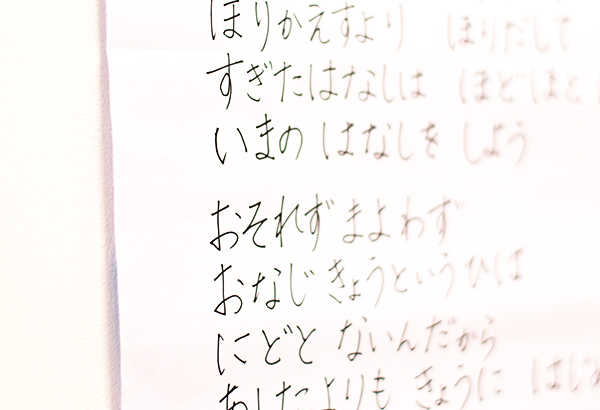 ほりかえすより ほりだして
すぎたはなしは ほどほど
いまの はなしを しよう
おそれず まよわず
おなじ きょうというひは
にどと ないんだから
あしたよりも きょうに はじめ